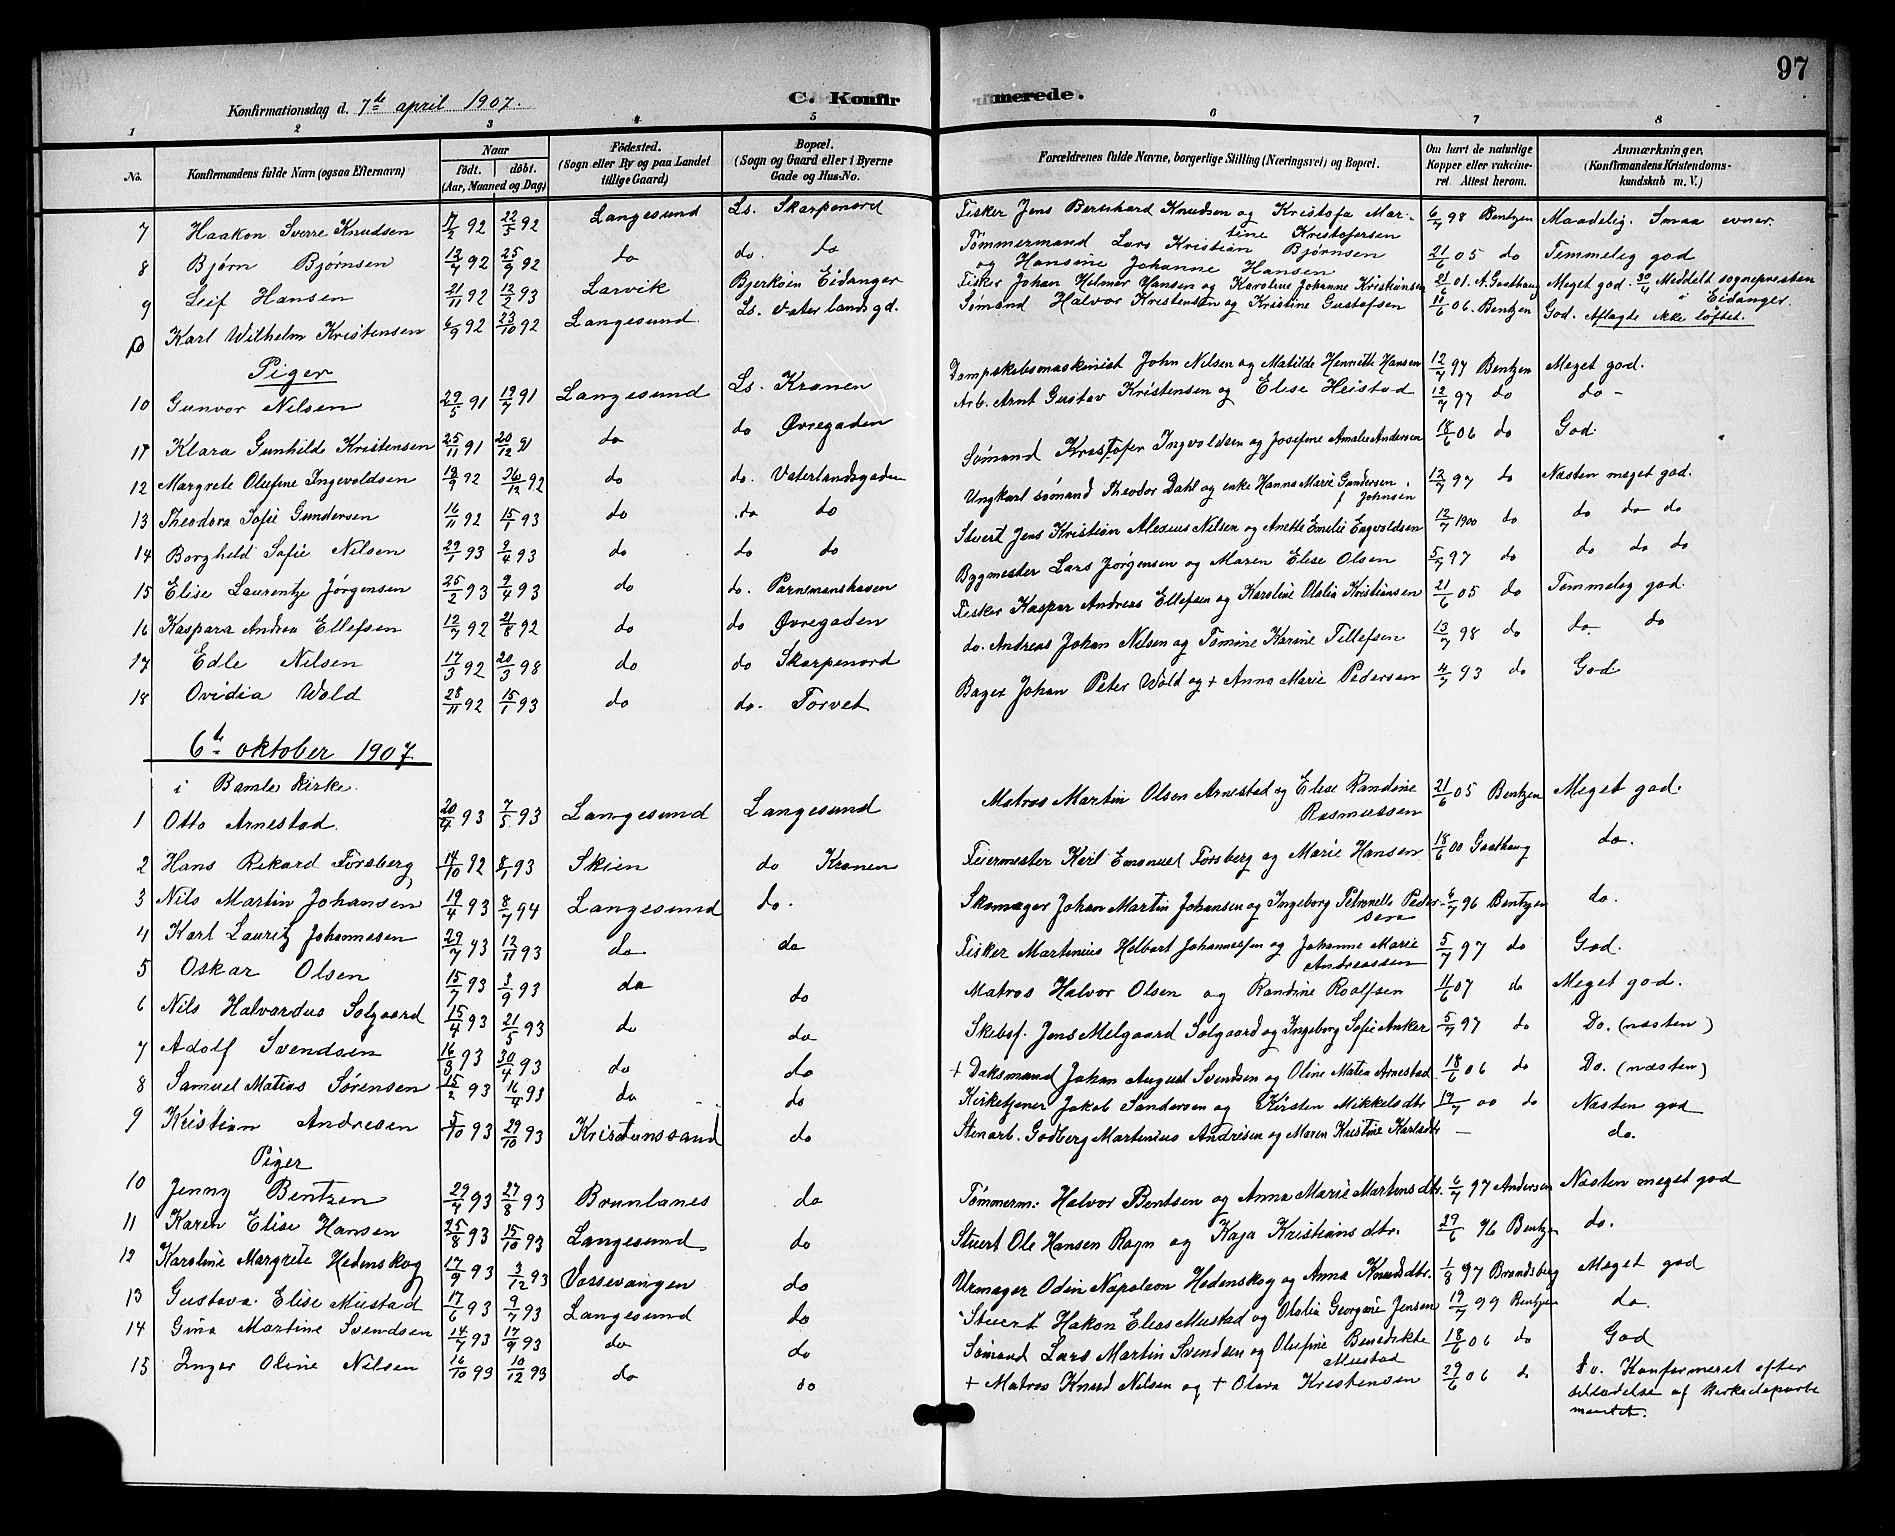 97
Konfirmationsdag d. 7de april 1907. C. Konfirmerede.
1 2 3 4 5 6 7 8
No. Konfirmandens fulde Navn (ogsaa Efternavn) Naar født. døbt. (Aar, Maaned og Dag) Fødested. (Sogn eller By og paa Landet tillige Gaard) Bopæl. (Sogn og Gaard eller i Byerne Gade og Hus-No. Forældrenes fulde Navne, borgerlige Stilling (Næringsvei) og Bopæl. Om havt de naturlige Kopper eller vakcineret. Attest herom. Anmærkninger, (Konfirmandens Kristendomskundskab m. V.)
7 Haakon Sverre Knudsen 17/2 92 22/5 92 Langesund Ls. Skarpenord Fisker Jens Bernhard Knudsen og Kristofa Martine Kristofersen 6/7 98 Bentzen Maadelig. Smaa evner.
8 Bjørn Bjørnsen 12/7 92 25/9 92 do do. do Tømmermand Lars Kristian Bjørnsen og Hansine Johanne Hansen 21/6 05 do Temmelig god
9 Leif Hansen 21/11 92 12/2 93 Larvik Bjerköen Eidanger Fisker Johan Hilmar Hansen og Karoline Johanne Kristiansen 21/6 01. A. Gaathaug Meget god. 30/4 Meddelt sognepresten i Eidanger.
Karl Wilhelm Kristensen 6/9 92 23/10 92 Langesund. Ls. Vaterlandsgd. Sømand Halvor Kristensen og Kristine Gustafsen 11/6 06. Bentzen God. Aflagde ikke løftet.
Piger
10 Gunvor Nilsen 29/5 91 19/7 91 Langesund Ls. Kranen Dampskibsmaskinist John Nilsen og Matilde Henriette Hansen 12/7 97 Bentzen Meget god.
11 Klara Gunhilde Kristensen 25/11 91 20/12 91 do do Øvregaden Arb. Arnt Gustav Kristensen og Elise Heistad 12/7 97 do do -
12 Margrete Olufine Ingvoldsen 18/9 92 26/12 92 do do. Vaterlandsgaden Sømand Kristofer Ingvoldsen og Josefine Amalie Andersen 18/6 06 do God.
13 Theodora Sofie Gundersen 16/11 92 15/1 93 do do do Ungkarl sømand Theodor Dahl og enke Hanna Marie Gundersen f. Johnsen 12/7 97 do Næsten meget god.
14 Borghild Sofie Nilsen 29/1 93 9/4 93 do do do Stuert Jens Kristian Alexius Nilsen og Anette Emilie Engvoldsen 12/7 1900 do do do do
15 Elise Laurentze Jørgensen 25/2 93 9/4 93 do do. Parnemanshaven Bygmester Lars Jørgensen og Maren Elise Olsen 5/7 97 do do do do
16 Kaspara Andrea Ellefsen 12/7 92 21/8 92 do do Øvregaden Fisker Kaspar Andreas Ellefsen og Karoline Olalia Kristiansen 21/6 05 do Temmelig god.
17 Edle Nilsen 17/3 92 20/3 98 do do Skarpenord do. Andreas Johan Nilsen og Tomine Karine Tillefsen 13/7 98 do do do
18 Ovidia Wold 28/11 92 15/1 93 do do. Torvet Bager Johan Peter Wold og + Anna Marie Pedersen 4/7 93 do God
6te oktober 1907
i Bamle Kirke.
1 Otto Arnestad. 20/4 93 7/5 93 Langesund Langesund Matros Martin Olsen Arnestad og Elise Randine Rasmussen 21/6 05 Bentzen Meget god.
2 Hans Rikard Forsberg 14/10 92 8/1 93 Skien do Kranen Feiermester Karl Emanuel Forsberg og Marie Hansen 18/6 00 Gaathaug do.
3 Nils Martin Johansen 19/4 93 8/7 94 Langesund do. Skomager Johan Martin Johansen og Ingeborg Petronelle Pedersen 6/7 96 Bentzen do.
4 Karl Lauritz Johannesen 29/7 93 12/11 93 do do Fisker Martinius Helbart Johannessen og Johanne Marie Andreassen 5/7 97 do God.
5 Oskar Olsen 15/7 93 3/9 93 do do Matros Halvor Olsen og Randine Roalfsen 11/6 07 do Meget god.
6 Nils Halvardus Solgaard 15/4 93 21/5 93 do do Skibsf. Jens Melgaard Solgaard og Ingeborg Sofie Anker 5/7 97 do Do. (næsten)
7 Adolf Svendsen 16/3 93 30/4 93 do do + Daksmand Johan August Svendsen og Oline Matea Arnestad 18/6 06 do Do. (næsten)
8 Samuel Matias Sørensen 15/2 93 16/4 93 do do Kirketjener Jakob Sandersen og Kirsten Mikkelsdtr 19/7 00 do Næsten god
9 Kristian Andresen 5/10 93 29/10 93 Kristianssand do Stenarb. Godberg Martinius Andresen og Maren Kristine Karlsdtr — do.
Piger
10 Jenny Bentzen 29/7 93 27/8 93 Brunlanes do Tømmerm. Halvor Bentsen og Anna Marie Martensdtr. 6/7 97 Andersen Næsten meget god
11 Karen Elise Hansen 25/8 93 15/10 93 Langesund do Stuert Ole Hansen Rogn og Kaja Kristiansdtr. 29/6 96 Bentzen do.
12 Karoline Margrete Hedenskog 17/9 93 3/12 93 Vossevangen do Urmager Odin Napoleon Hedenskog og Anna Knudsdtr. 1/8 97 Brandsberg Meget god
13 Gustava Elise Mustad 17/6 93 9/7 93 Langesund do Stuert Hakon Elias Mustad og Olalia Georgine Jensen 19/7 99 Bentzen do.
14 Gina Martine Svendsen 14/7 93 17/9 93 do do Sømand Lars Martin Svendsen og Olufine Benedikte Mustad 18/6 06 do God
15 Inger Oline Nilsen 16/10 93 10/12 93 do do + Matros Knud Nilsen og + Olava Kristensen 29/6 06 do Do. Konfirmeret efter tilladelse af Kirkedepartementet.